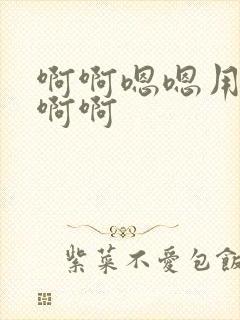 啊啊嗯嗯用
啊啊
紫菜不愛包飯